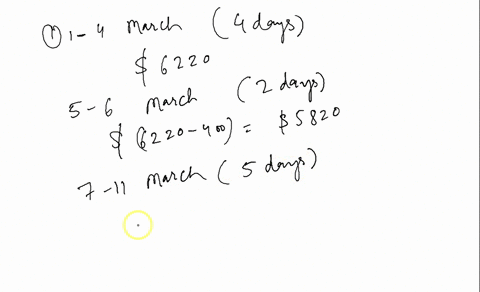 ① 1-4 March (4 days)
$ 6220
5-6 March (2 days)
$ (6220-400) = $5820
7-11 March (5 days)